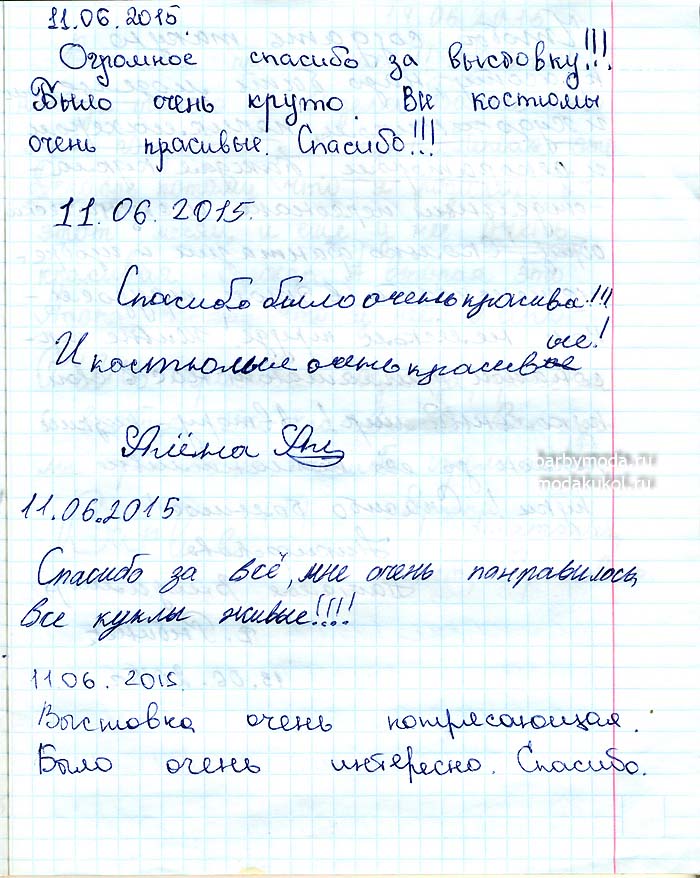 11.06.2015
Огромное спасибо за выстовку!!!
Было очень круто. Все костюмы
очень красивые. Спасибо!!!
11.06.2015.
Спасибо было очень красива!!!
ые!
И костюмые очень красивое
Алёна Ал
barbymoda.ru
modakukol.ru
11.06.2015
Спасибо за всё, мне очень панравилось,
все куклы живые!!!!
11.06.2015.
Выстовка очень потресающая.
Было очень интересно. Спасибо.